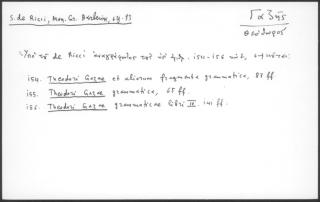 S. de Ricci, Mss. Gr. Barberini, σ. 93
Γαζῆς
Θεόδωρος
Ὑπὸ τοῦ de Ricci ἀναγράφονται ὑπ' ἀρ. 154-156
154. Theodori Gazae et aliorum fragmenta grammatica, 88 ff.
155. Theodori Gazae grammatica, 65 ff.
156. Theodori Gazae grammaticae libri IV. 141 ff.